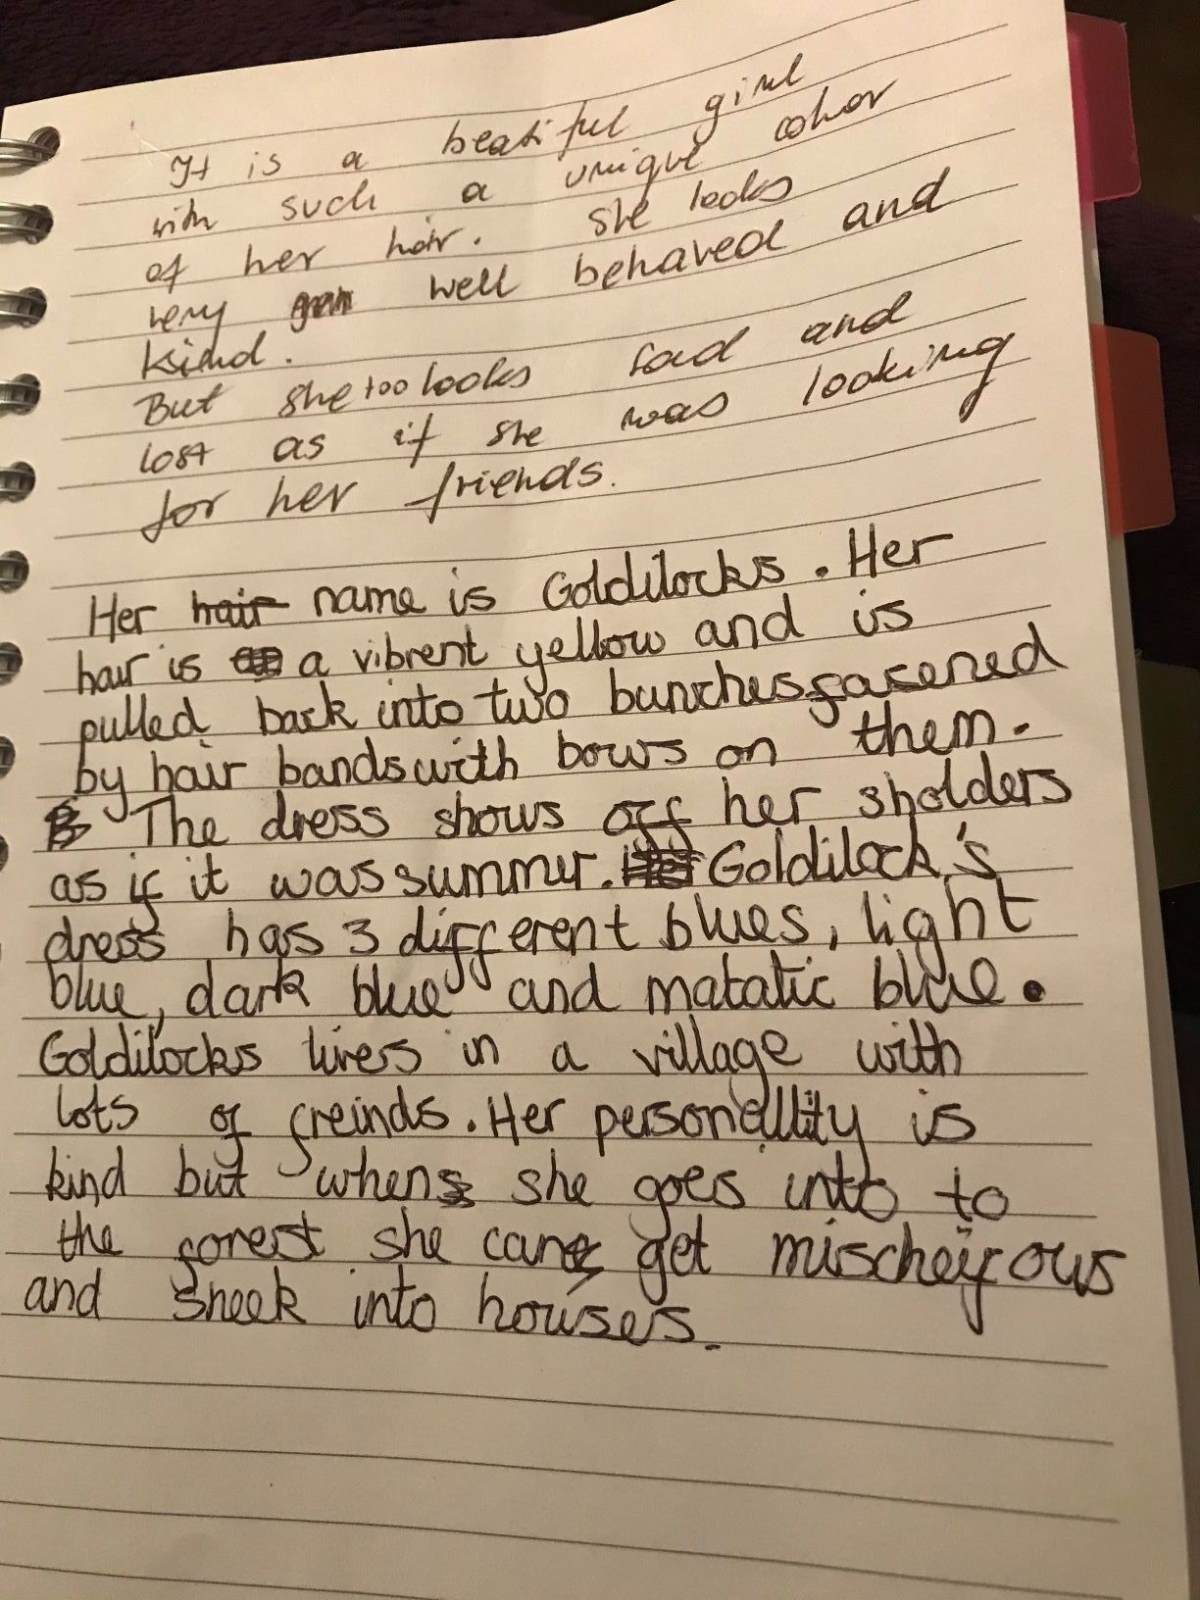 It is a beatiful girl
with such a unique color
of her hair. She looks
very well behaved and
kind.
But she too looks sad and
lost as if she was looking
for her friends.
Her hair name is Goldilocks. Her
hair is a vibrent yellow and is
pulled back into two bunches fasened
by hair bands with bows on them.
The dress shows off her sholders
as if it was summer. Goldilock's
dress has 3 different blues, light
blue, dark blue and matatic blue.
Goldilocks lives in a village with
lots of freinds. Her personallity is
kind but when she goes into to
the forest she can get mischeifous
and sneek into houses.